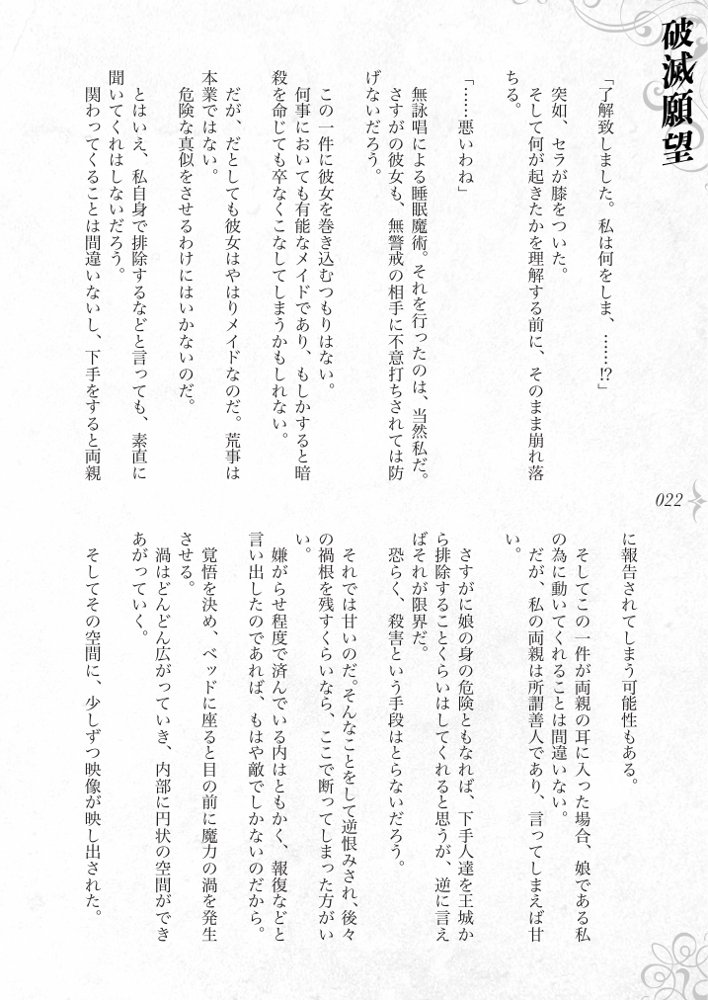 破滅願望
「了解致しました。私は何をしま、……!?」
突如、セラが膝をついた。
そして何が起きたかを理解する前に、そのまま崩れ落
ちる。
「……悪いわね」
無詠唱による睡眠魔術。それを行ったのは、当然私だ。
さすがの彼女も、無警戒の相手に不意打ちされては防
げないだろう。
この一件に彼女を巻き込むつもりはない。
何事においても有能なメイドであり、もしかすると暗
殺を命じても卒なくこなしてしまうかもしれない。
だが、だとしても彼女はやはりメイドなのだ。荒事は
本業ではない。
危険な真似をさせるわけにはいかないのだ。
とはいえ、私自身で排除するなどと言っても、素直に
聞いてくれはしないだろう。
関わってくることは間違いないし、下手をすると両親
022
に報告されてしまう可能性もある。
そしてこの一件が両親の耳に入った場合、娘である私
の為に動いてくれることは間違いない。
だが、私の両親は所謂善人であり、言ってしまえば甘
い。
さすがに娘の身の危険ともなれば、下手人達を王城か
ら排除することくらいはしてくれると思うが、逆に言え
ばそれが限界だ。
恐らく、殺害という手段はとらないだろう。
それでは甘いのだ。そんなことをして逆恨みされ、後々
の禍根を残すくらいなら、ここで断ってしまった方がい
い。
嫌がらせ程度で済んでいる内はともかく、報復などと
言い出したのであれば、もはや敵でしかないのだから。
覚悟を決め、ベッドに座ると目の前に魔力の渦を発生
させる。
渦はどんどん広がっていき、内部に円状の空間ができ
あがっていく。
そしてその空間に、少しずつ映像が映し出された。